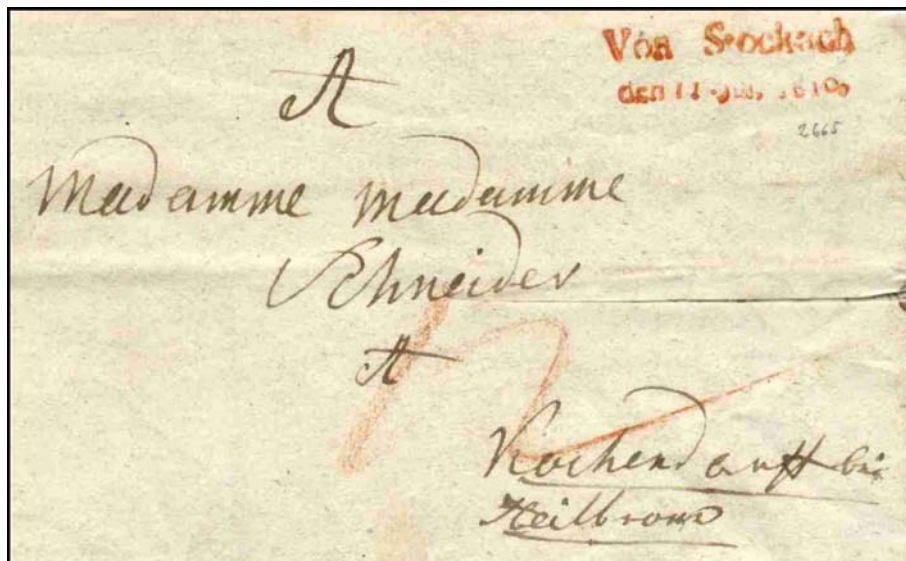 Von Stockach
den 11 Jul. 1810.
2665
A
Madamme Madamme
Schneider
A
12
Kochendorff bei
Heilbronn